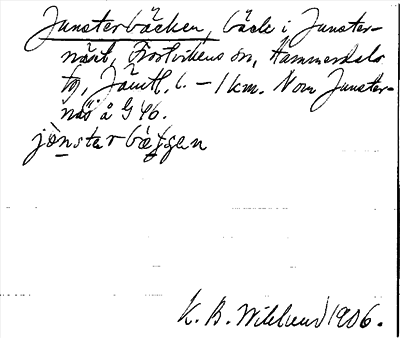 Junsterbäcken, bäck i Junster-
näset, Frostvikens sn, Hammerdals
tg, Jämtl. l. – 1 km. N om Junster-
näs å G 46.
jònstarbætʃen
K. B. Wiklund 1906.